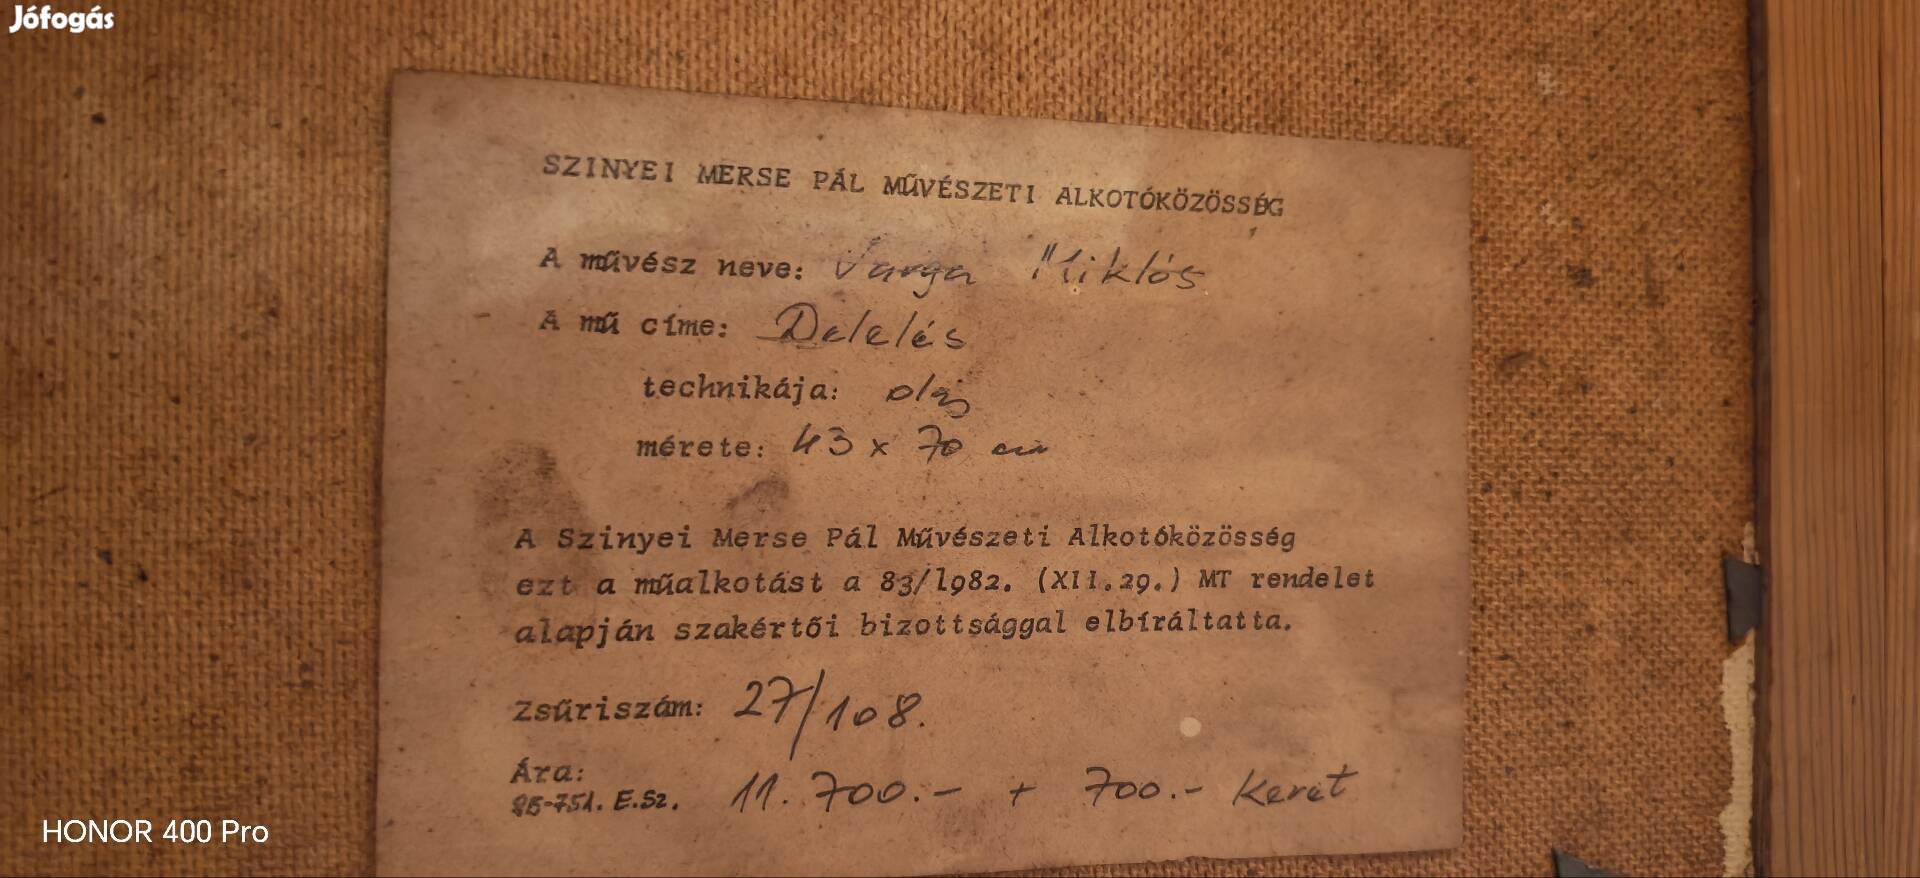 Jófogás
SZINYEI MERSE PÁL MŰVÉSZETI ALKOTÓKÖZÖSSÉG
A művész neve: Varga Miklós
A mű címe: Delelés
technikája: olaj
mérete: 43 x 70 cm
A Szinyei Merse Pál Művészeti Alkotóközösség
ezt a műalkotást a 83/1982. (XII.29.) MT rendelet
alapján szakértői bizottsággal elbíráltatta.
Zsűriszám: 27/108.
Ára:
85-751. E.Sz. 11.700.- + 700.- Keret
HONOR 400 Pro